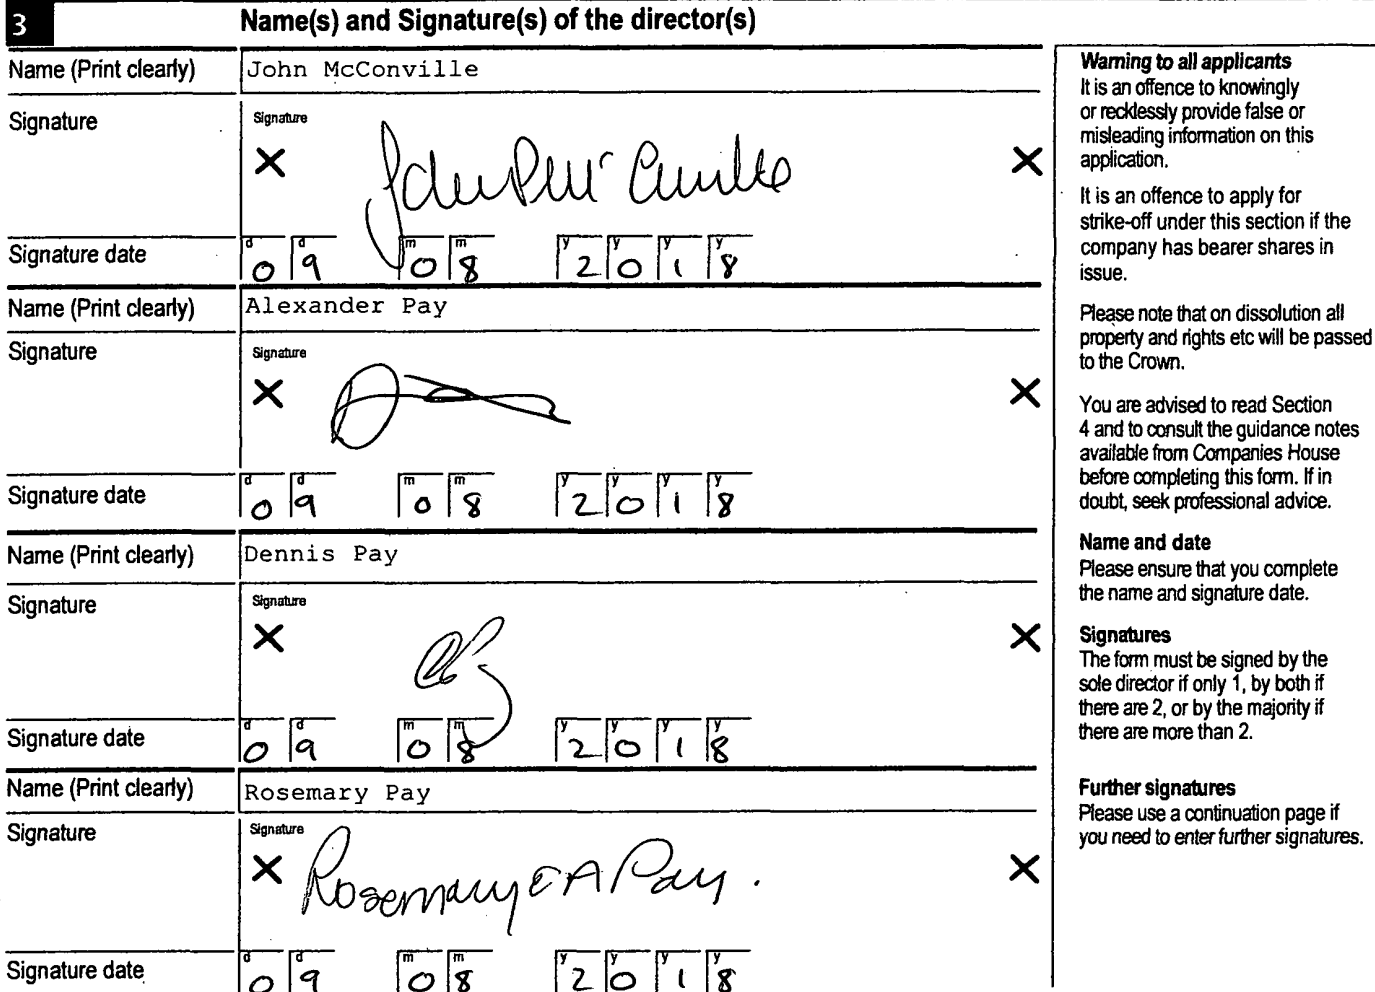 3 Name(s) and Signature(s) of the director(s)
Name (Print clearly) John McConville
Signature
Signature
X X
Signature date d 0 d 9 m 0 m 8 y 2 y 0 y 1 y 8
Name (Print clearly) Alexander Pay
Signature
Signature
X X
Signature date d 0 d 9 m 0 m 8 y 2 y 0 y 1 y 8
Name (Print clearly) Dennis Pay
Signature
Signature
X X
Signature date d 0 d 9 m 0 m 8 y 2 y 0 y 1 y 8
Name (Print clearly) Rosemary Pay
Signature
Signature
X Rosemary E A Pay. X
Signature date d 0 d 9 m 0 m 8 y 2 y 0 y 1 y 8
Warning to all applicants
It is an offence to knowingly
or recklessly provide false or
misleading information on this
application.
It is an offence to apply for
strike-off under this section if the
company has bearer shares in
issue.
Please note that on dissolution all
property and rights etc will be passed
to the Crown.
You are advised to read Section
4 and to consult the guidance notes
available from Companies House
before completing this form. If in
doubt, seek professional advice.
Name and date
Please ensure that you complete
the name and signature date.
Signatures
The form must be signed by the
sole director if only 1, by both if
there are 2, or by the majority if
there are more than 2.
Further signatures
Please use a continuation page if
you need to enter further signatures.